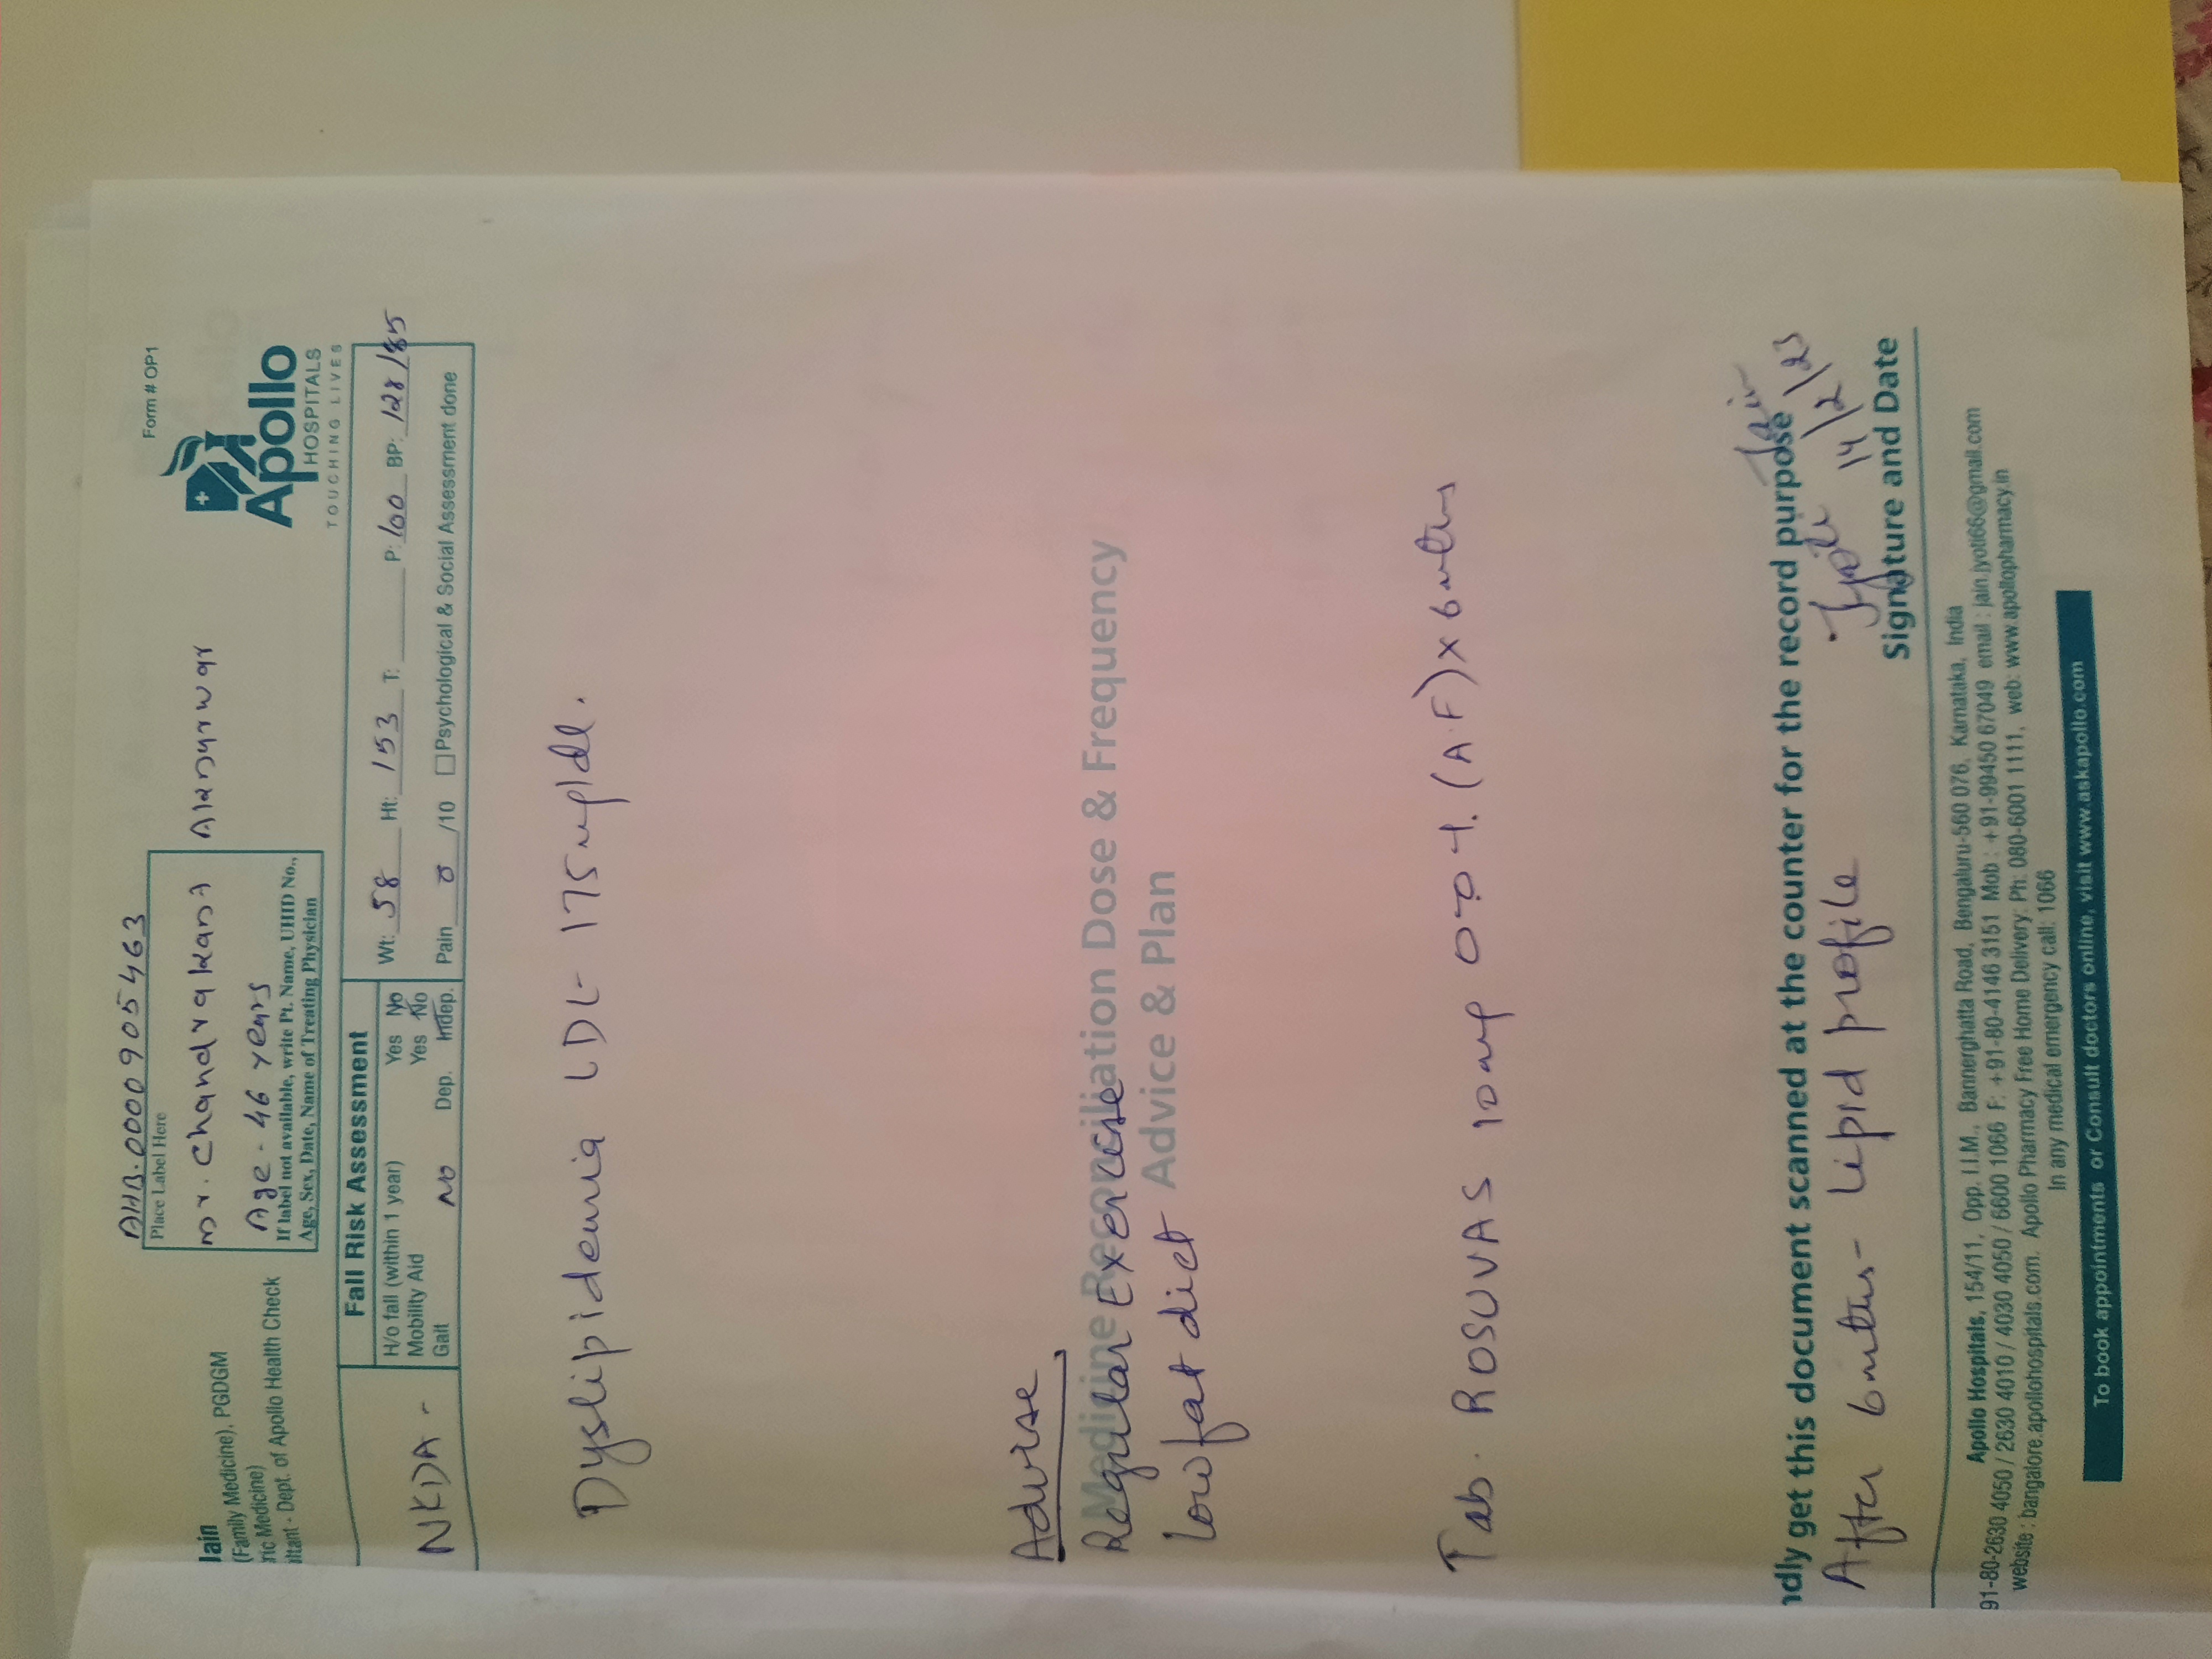 AHB.0000905463
Place Label Here
Form # OP1
Mr. Chandrakant
Age - 46 years
If label not available, write Pt. Name, UHID No.,
Age, Sex, Date, Name of Treating Physician
Jain
(Family Medicine), PGDGM
ric Medicine)
ltant - Dept. of Apollo Health Check
Apollo
HOSPITALS
TOUCHING LIVES
NKDA -
Fall Risk Assessment
H/o fall (within 1 year) Yes No
Mobility Aid Yes No
Gait NO Dep. Indep.
Wt: 58 Ht: 153 T: P: 100 BP: 128/85
Pain 0 /10 Psychological & Social Assessment done
Dyslipidemia LDL- 175mg/dl.
Advise
Medicine Reconciliation Dose & Frequency
Regular Exercise
Advice & Plan
low fat diet
Tab. ROSUVAS 10mg 0-0-1. (A.F) x 6mths
ndly get this document scanned at the counter for the record purpose
After 6mths- lipid profile
Jyoti Jain
14/2/23
Signature and Date
Apollo Hospitals, 154/11, Opp. I.I.M., Bannerghatta Road, Bengaluru-560 076, Karnataka, India
91-80-2630 4050 / 2630 4010 / 4030 4050 / 6600 1066 F: +91-80-4146 3151 Mob : +91-99450 67049 email : jain.jyoti66@gmail.com
website : bangalore.apollohospitals.com. Apollo Pharmacy Free Home Delivery: Ph: 080-6001 1111, web: www.apollopharmacy.in
In any medical emergency call: 1066
To book appointments or Consult doctors online, visit www.askapollo.com